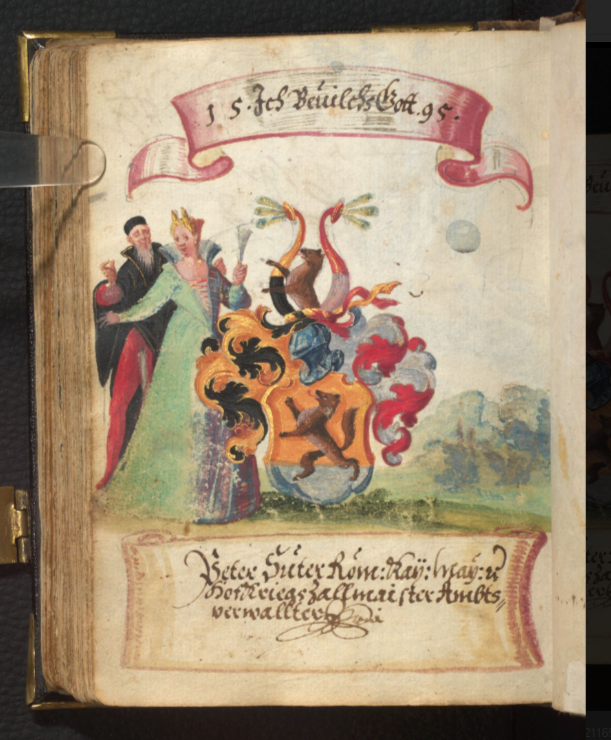 15. Ich Beuilchs Gott. 95.
Peter Suter Röm: Kaÿ: Maÿ: u
Hof Kriegszallmaister Ambts
verwallter